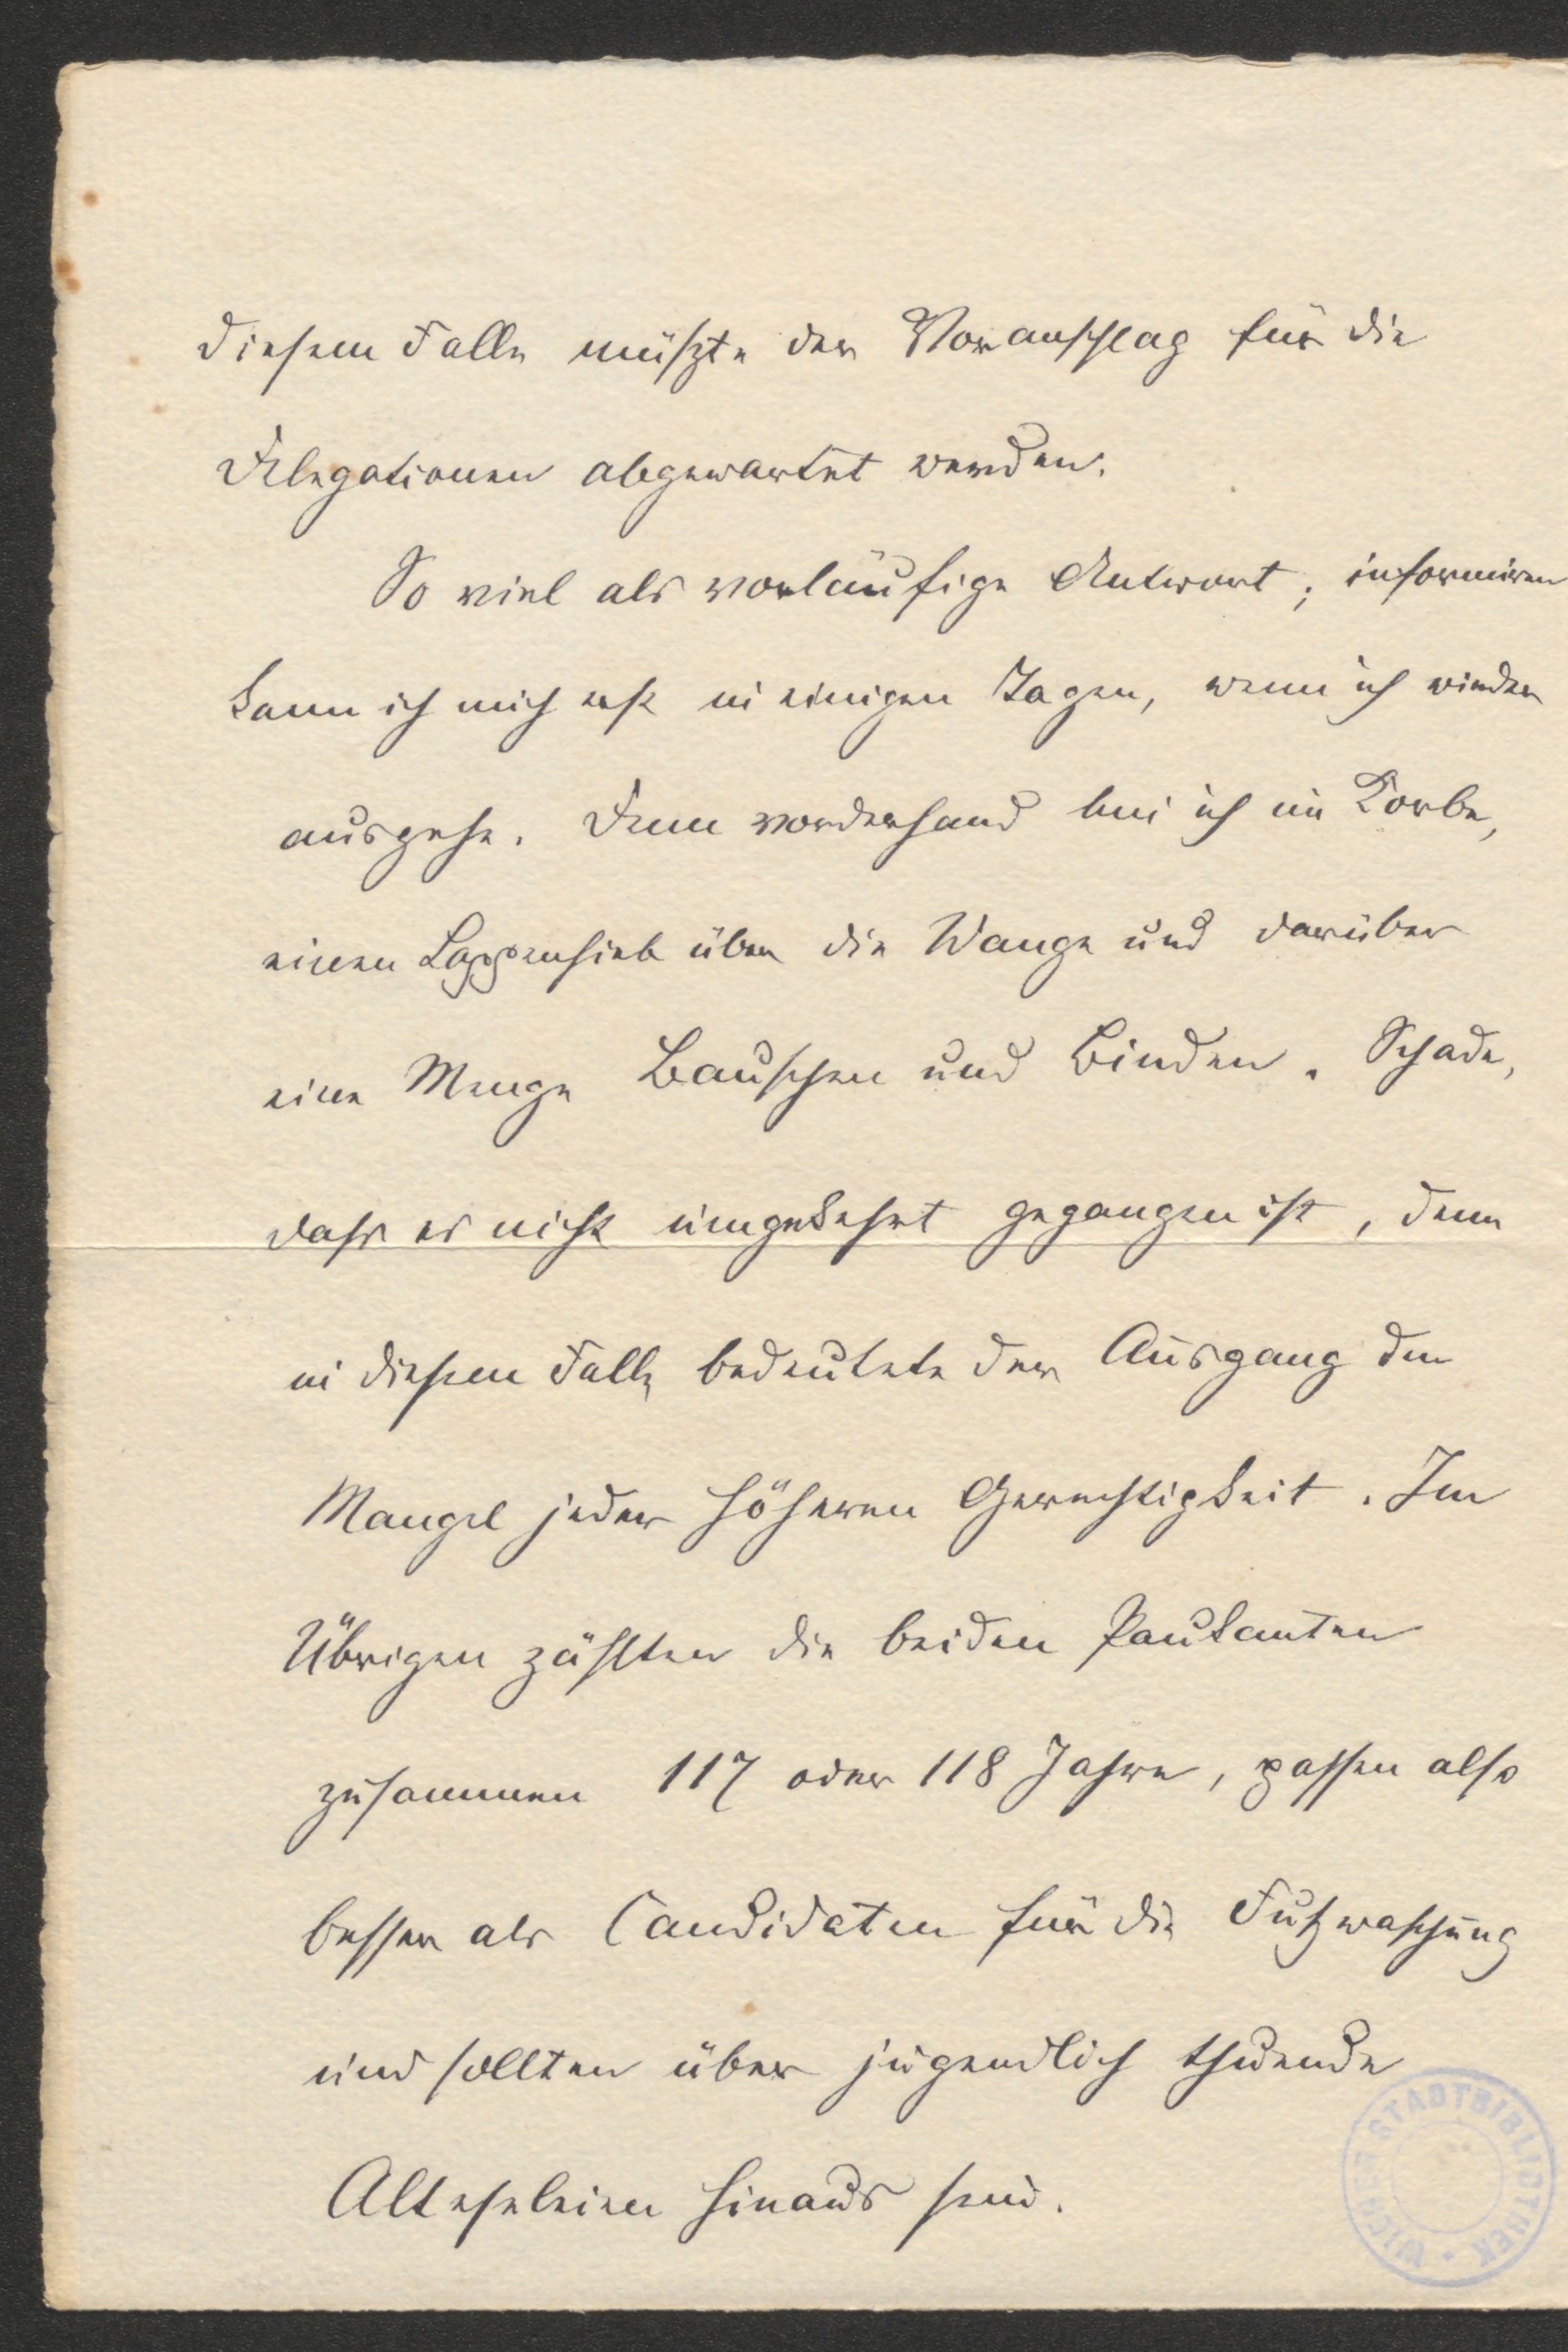 diesem Falle müßte der Voranschlag für die
Delegationen abgewartet werden.
So viel als vorläufige Antwort; informiren
kann ich mich erst in einigen Tagen, wenn ich wieder
ausgehe. Denn vorderhand bin ich im Korbe,
einen Lappenhieb über die Wange und darüber
eine Menge Bauschen und Binden. Schade,
dass es nicht umgekehrt gegangen ist, denn
in diesem Falle bedeutete der Ausgang den
Mangel jeder höheren Gerechtigkeit. Im
Übrigen zählten die beiden Paukanten
zusammen 117 oder 118 Jahre, passen also
besser als Candidaten für die Fußwaschung
und sollten über jugendlich thuende
Alteseleien hinaus sein.
WIENER STADTBIBLIOTHEK